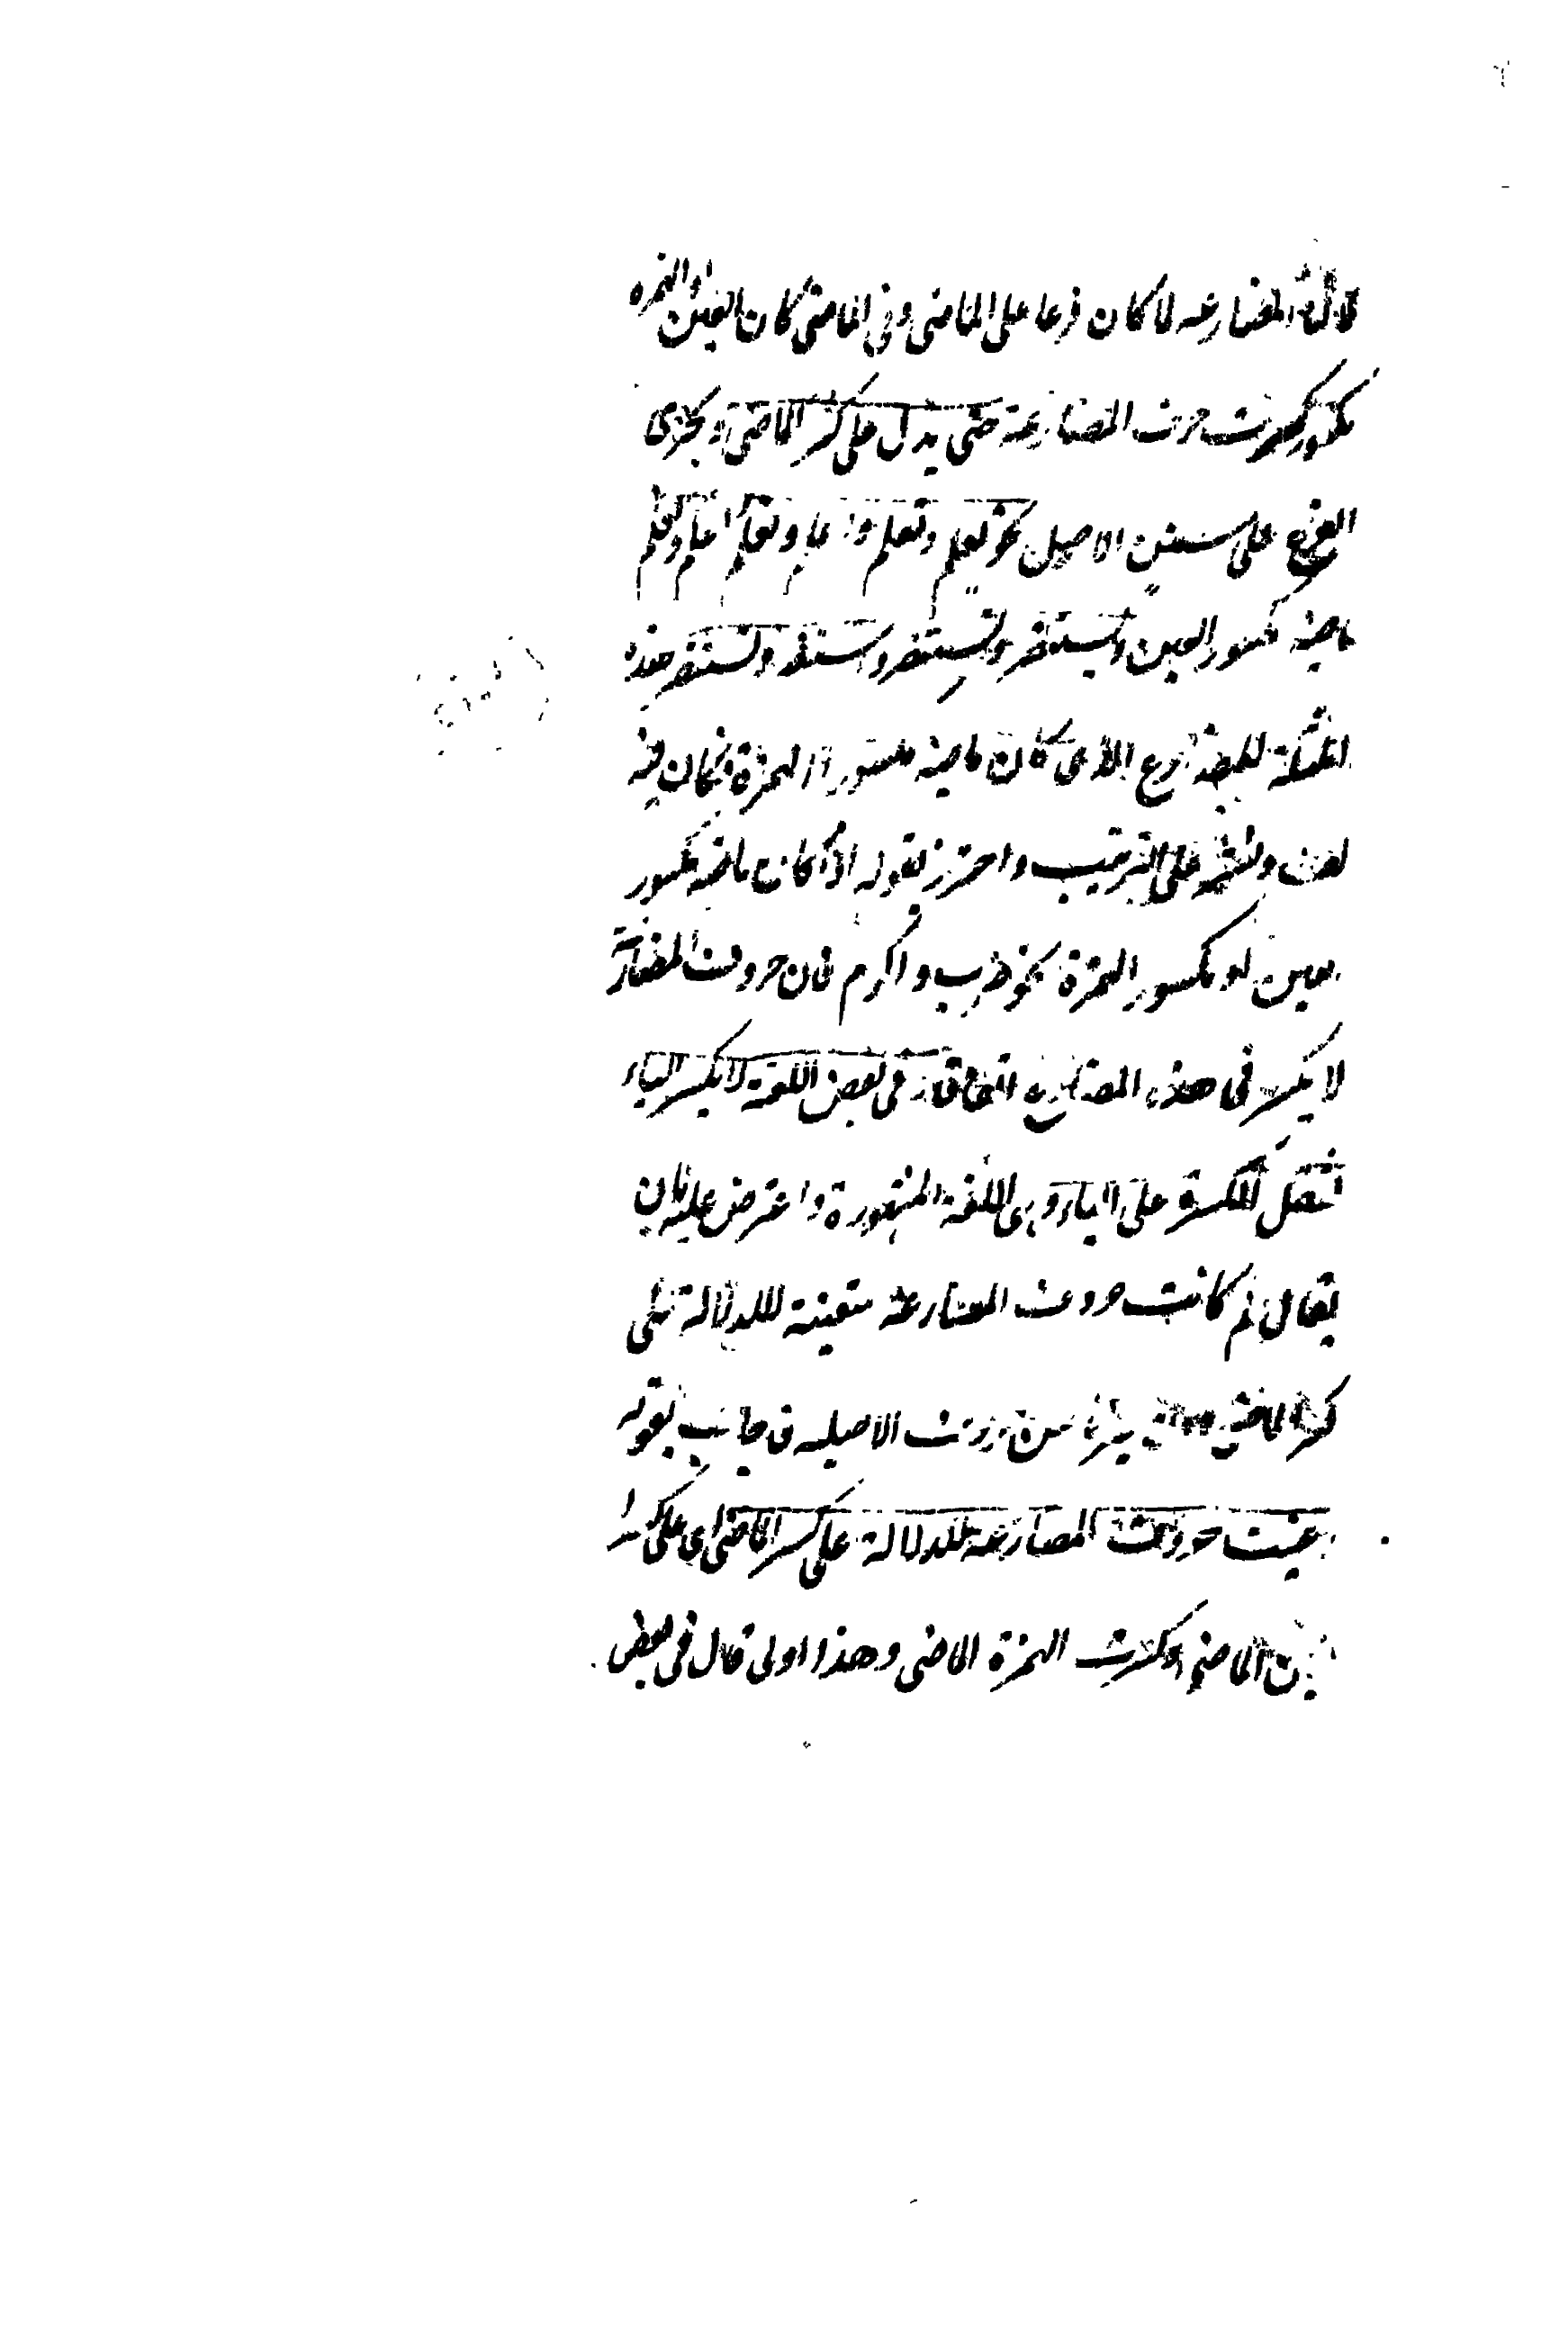 فان المضارعة لما كان فرعا على الماضى وفى الماضى كان العين او الهمزة
مكسور كسرت حرف المضارعة حتى يدل على كسر الماضى ويجرى
الفرع على سنن الاصل نحو يعلم وتعلم واعلم ونعلم
ماضيه مكسور العين ويستنصر وتستنصر واستنصر ونستنصر هذه
امثلة للمضارع الذى كان ماضيه مكسور الهمزة فكان فيه
لف ونشر على الترتيب واحترز بقوله اذا كان ماضيه مكسور
العين او مكسور الهمزة نحو ضرب واكرم فان حروف المضارعة
لا يكسر فى هذه المضارع اتفاقا وفى بعض اللغة لا يكسر الياء
لثقل الكسرة على الياء وهى اللغة المشهورة واعترض عليه بان
يقال لم كانت حروف المضارعة متعينة للدلالة على
كسر الماضى من حروف الاصلية فاجاب بقوله
وعينت حروف المضارعة للدلالة على كسر الماضى اى على كسر
عين الماضى او كسرت الهمزة الماضى وهذا اولى قال فى بعض